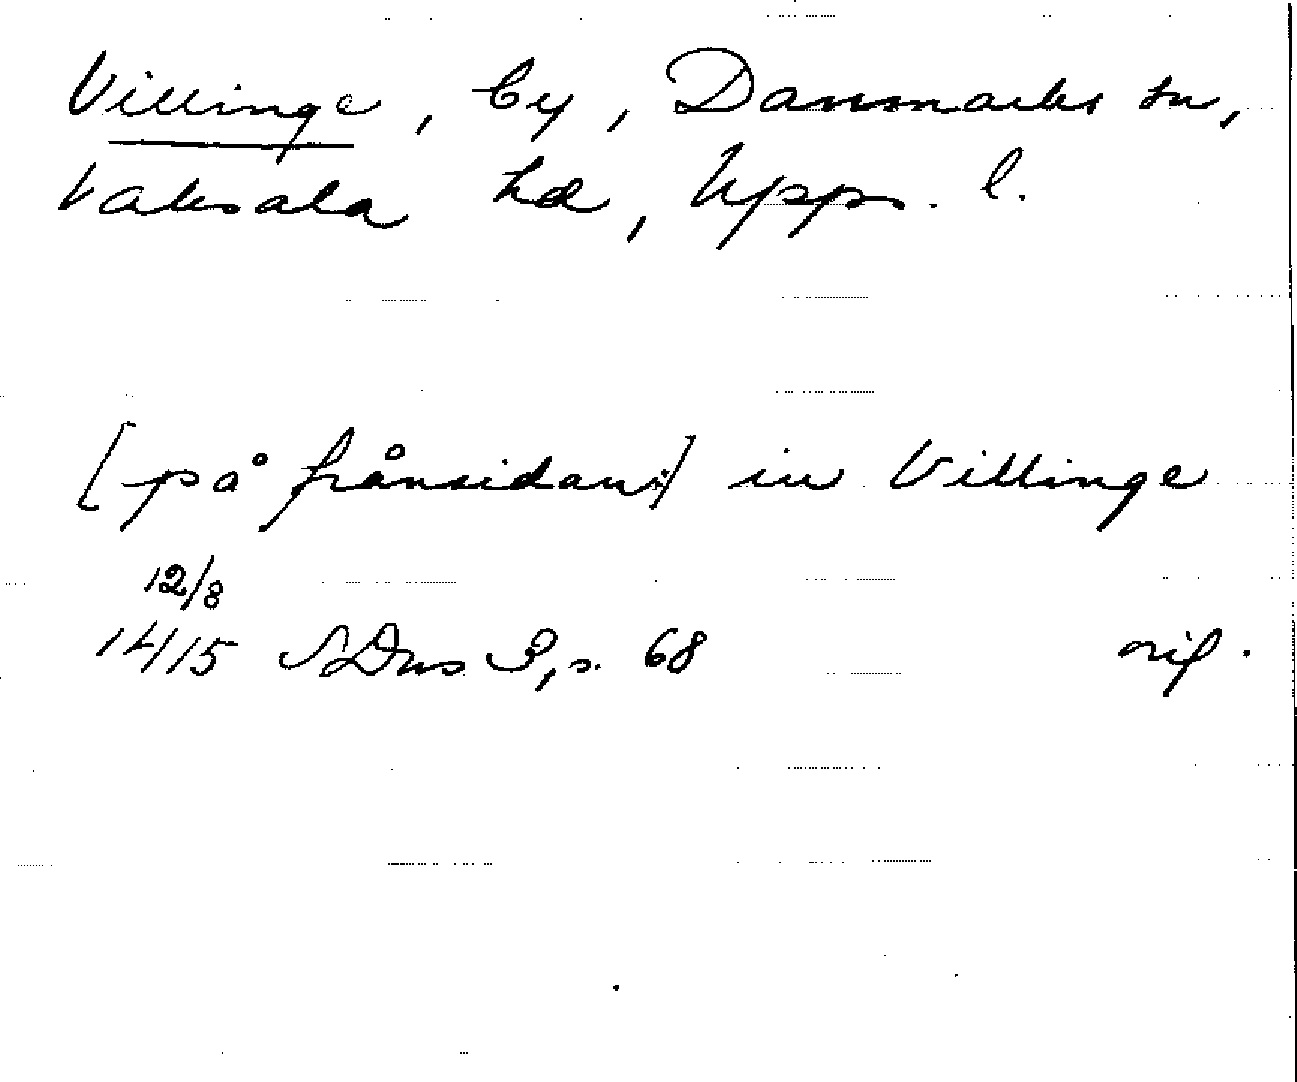 Villinge, by, Danmarks sn,
Vaksala hd, Upps. l.
[på frånsidan:] in Villinge
12/8
1415 SDns 3, s. 68 orig.